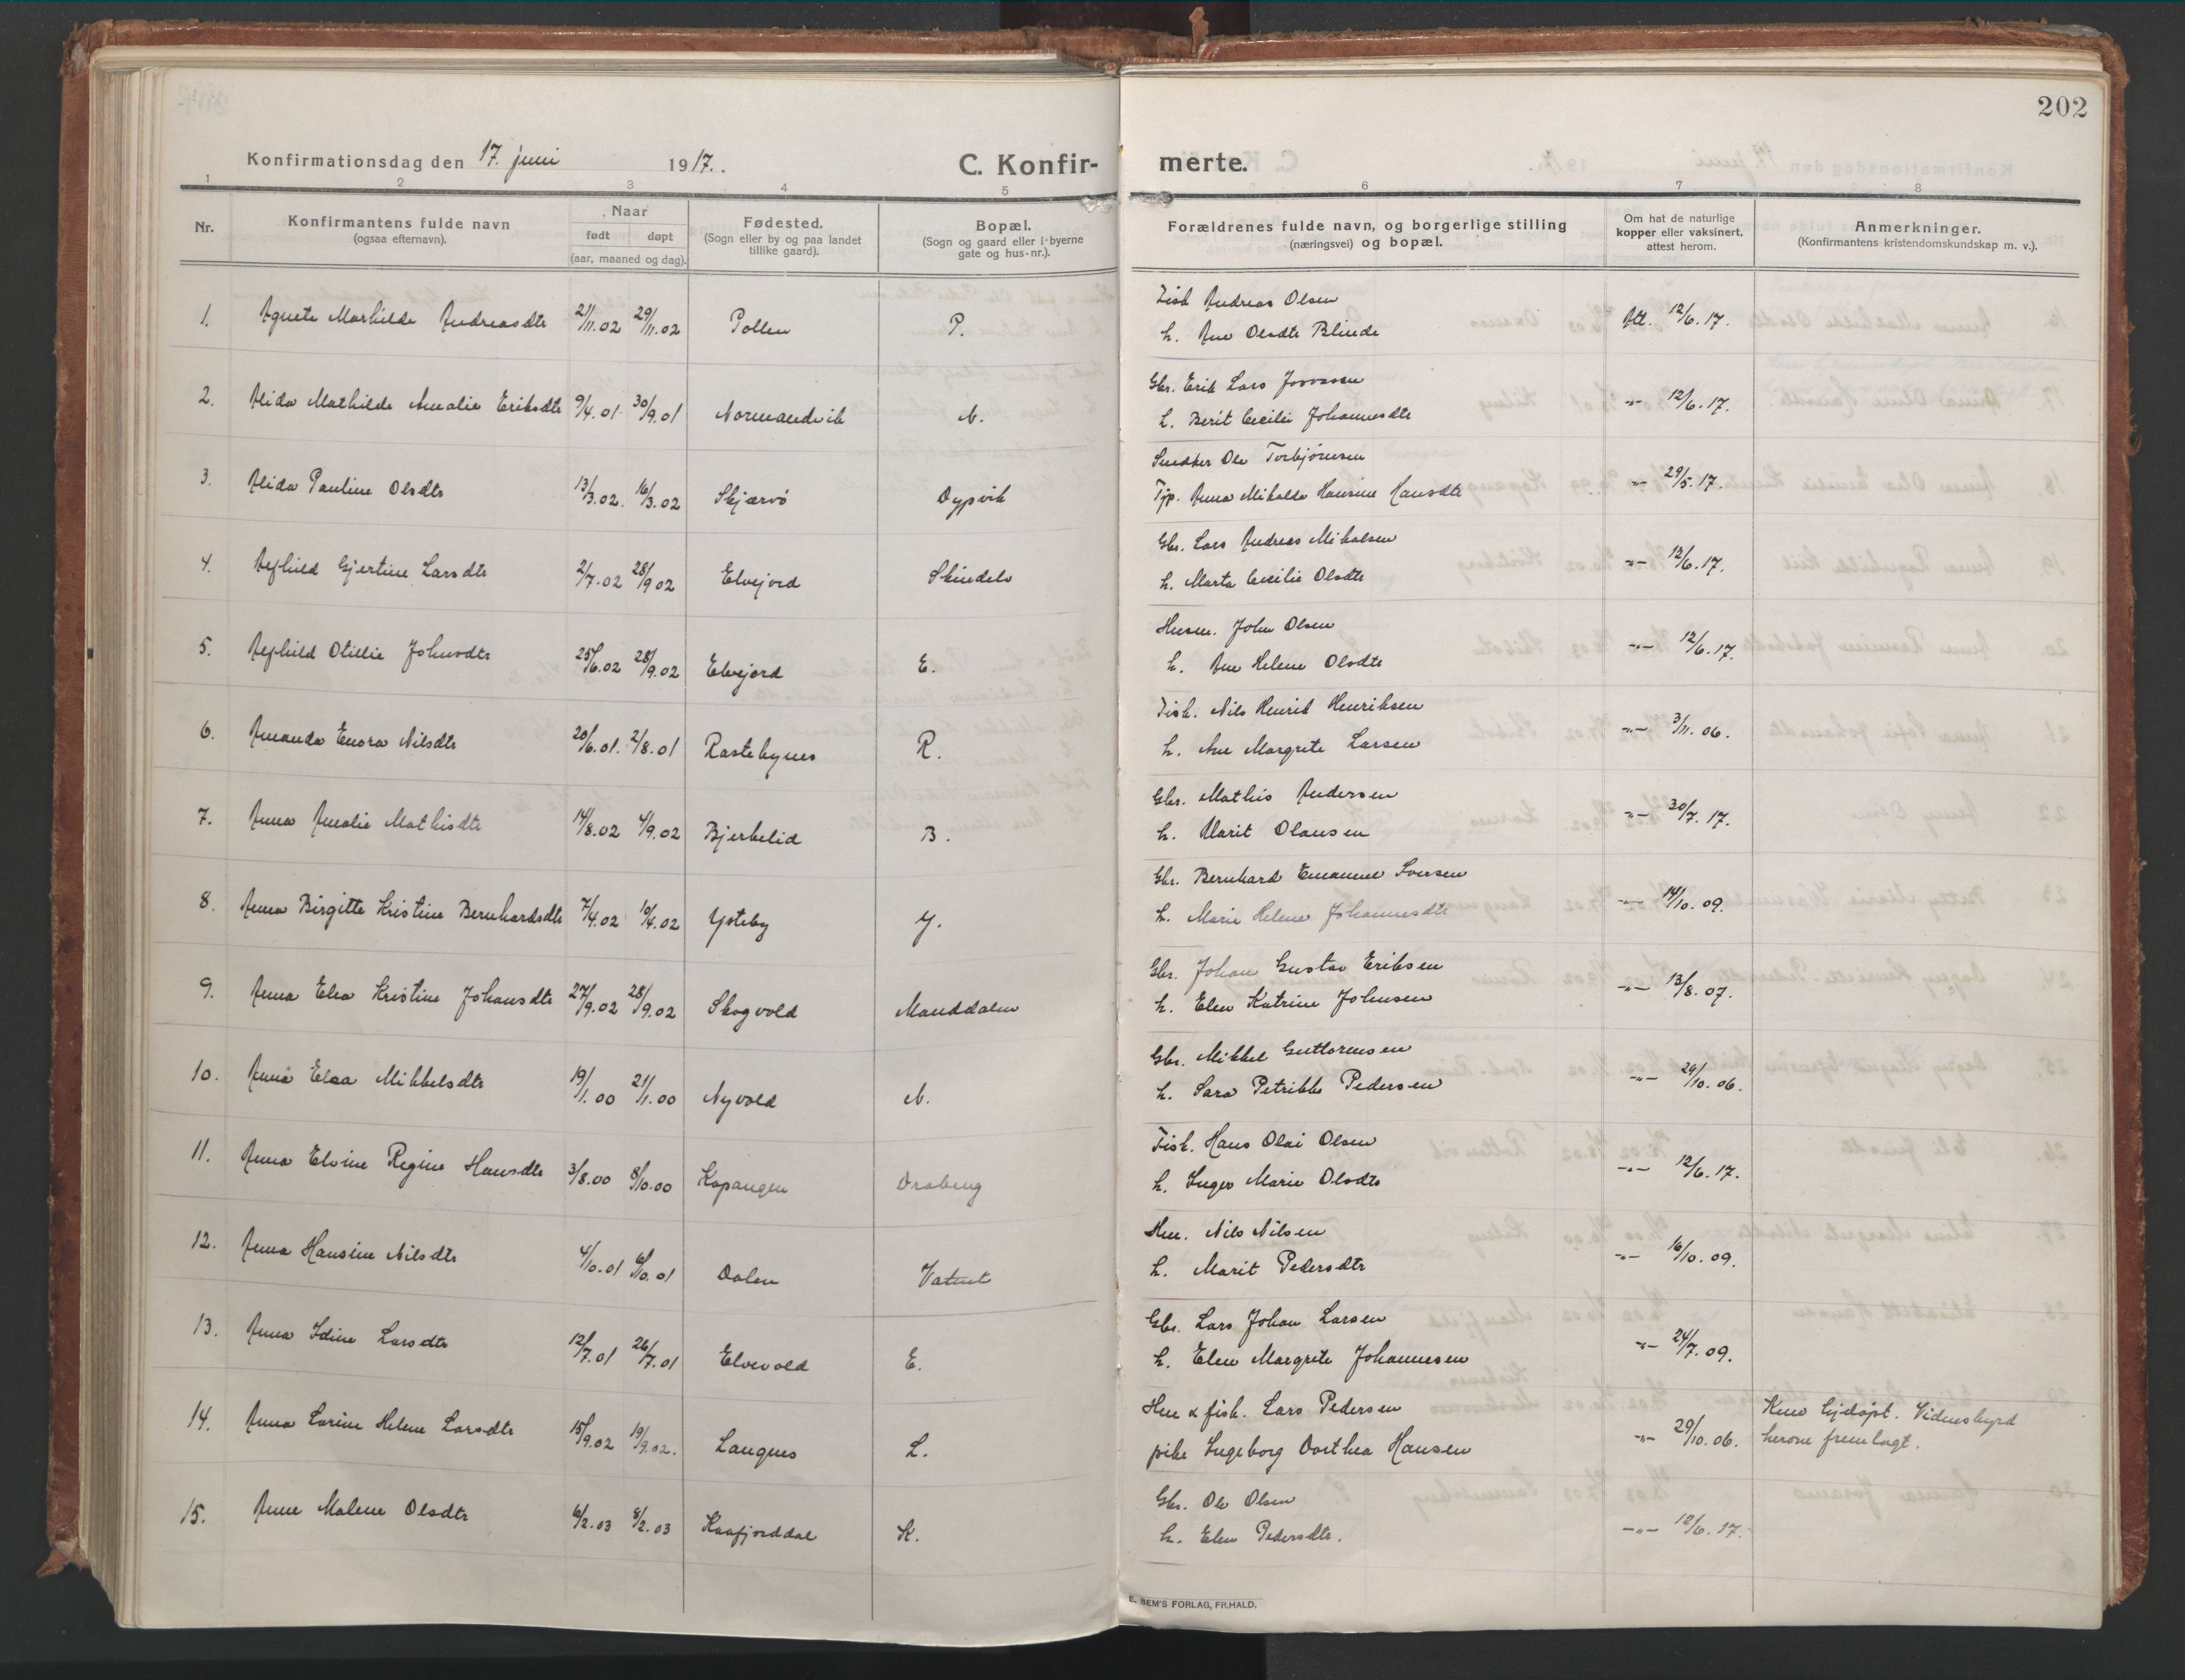 202
Konfirmationsdag den 17. juni 1917.
C. Konfir-
merte.
1 2 3 4 5 6 7 8
Nr.
Konfirmantens fulde navn
(ogsaa efternavn).
Naar
født døpt
(aar, maaned og dag).
Fødested.
(Sogn eller by og paa landet
tillike gaard).
Bopæl.
(Sogn og gaard eller i byerne
gate og hus-nr.).
Forældrenes fulde navn, og borgerlige stilling
(næringsvei) og bopæl.
Om hat de naturlige
kopper eller vaksinert,
attest herom.
Anmerkninger.
(Konfirmantens kristendomskundskap m. v.).
1. Agnete Marhilde Andreasdtr 21/11.02 29/11.02 Pollen P.
Fisk Andreas Olsen
h. Ane Olsdtr Blinde
Att. 12/6.17.
2. Alida Mathilde Amalie Eriksdtr 9/4.01 30/9.01 Normandvik N.
Gbr. Erik Lars Josvasen
h. Berit Cecilie Johannesdtr
-"- 12/6.17.
3. Alida Pauline Olsdtr 13/3.02. 16/3.02 Skjærvø Dypvik
Snedker Ole Torbjørnsen
Tjp. Anna Mikalda Hansine Hansdtr
-"- 29/5.17.
4. Asfhild Gjertine Larsdtr 2/7.02 28/9.02 Elvejord Skindelv
Gbr. Lars Andreas Mikalsen
h. Marta Cecilie Olsdtr
-"- 12/6.17.
5. Asfhild Otilie Johnsdtr 25/6.02 28/9.02 Elvejord E.
Husm. John Olsen
h. Ane Helene Olsdtr
-"- 12/6.17.
6. Amanda Enora Nilsdtr 20/6.01. 2/8.01 Rastebynes R.
Fisk. Nils Henrik Henriksen
h. Ane Margrete Larsen
-"- 3/11.06.
7. Anna Amalie Mathisdtr 14/8.02 4/9.02 Bjerkelid B.
Gbr. Mathis Andersen
h. Marit Olausen
-"- 30/7.17.
8. Anna Birgitte Kristine Bernhardsdtr 7/4.02 10/4.02 Ysteby Y.
Gbr. Bernhard Emanuel Iversen
h. Marie Helene Johannesdtr
-"- 14/10.09.
9. Anna Elea Kristine Johansdtr 27/9.02 28/9.02 Skogvold Manddalen
Gbr. Johan Gustav Eriksen
h. Elen Katrine Johnsen
-"- 13/8.07.
10. Anna Elsa Mikkelsdtr 19/1.00 21/1.00 Nyvold N.
Gbr. Mikkel Guttormsen
h. Sara Petrikke Pedersen
-"- 29/10.06.
11. Anna Elvine Regine Hansdtr 3/8.00 8/10.00 Kopangen Draberg
Fisk. Hans Olai Olsen
h. Inger Marie Olsdtr
-"- 12/6.17.
12. Anna Hansine Nilsdtr 4/10.01 6/10.01 Dalen Vatnet
Hm. Nils Nilsen
h. Marit Pedersdtr
-"- 16/10.09.
13. Anna Idine Larsdtr 12/7.01 26/7.01 Elvevold E.
Gbr. Lars Johan Larsen
h. Elen Margrete Johannesen
-"- 24/7.09.
14. Anna Larine Helene Larsdtr 15/9.02 19/9.02. Langnes L.
Hm & fisk. Lars Pedersen
pike Ingeborg Dorthea Hansen
-"- 29/10.06.
Kun hjdøpt. Vidnesbyrd
herom fremlagt.
15. Anne Malene Olsdtr 6/2.03 8/2.03 Kaafjorddal K.
Gbr. Ole Olsen
h. Elen Pedersdtr.
-"- 12/6.17.
E. SEM'S FORLAG, FR.HALD.